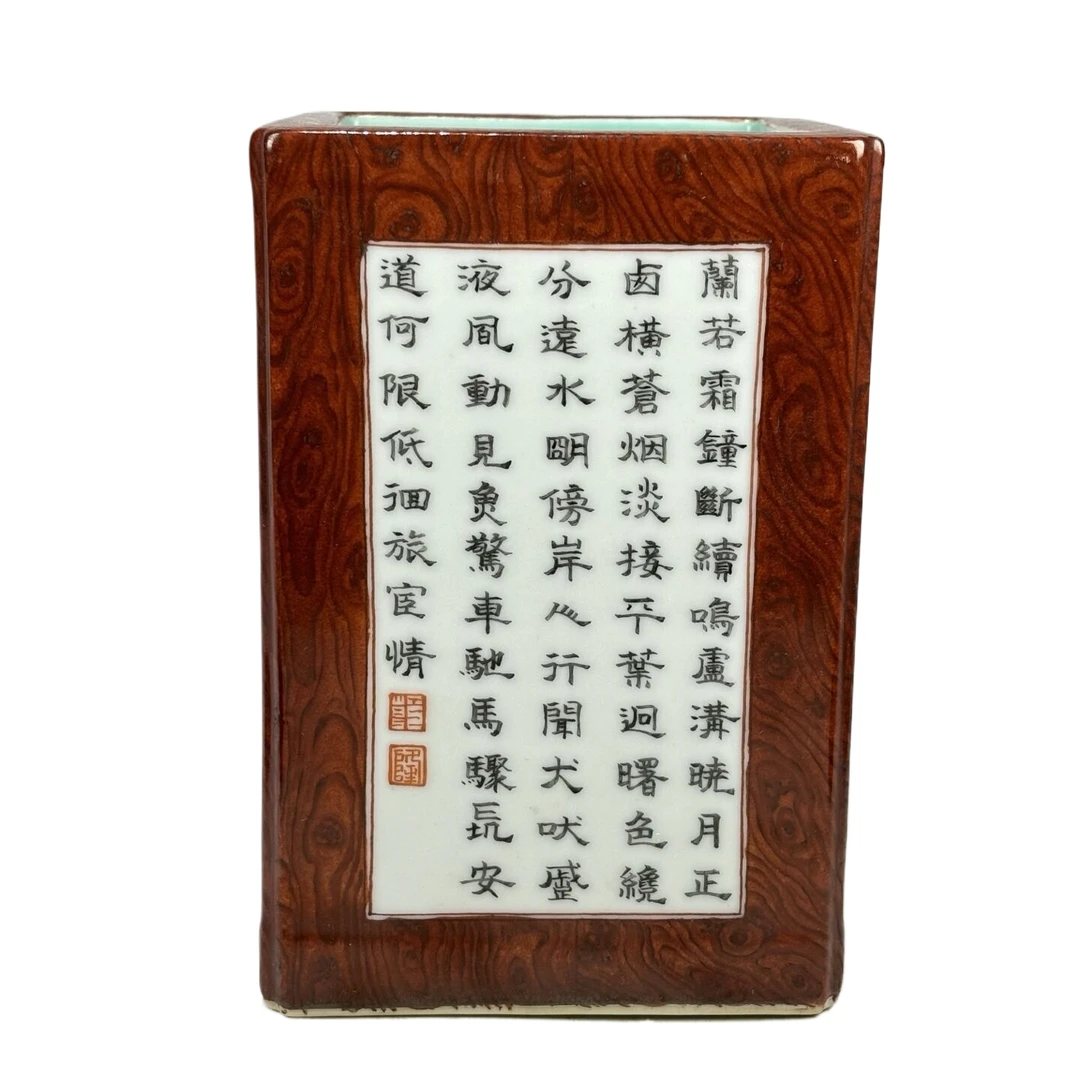 蘭若霜鐘斷續鳴盧溝曉月正
卥橫蒼烟淡接平葉迥曙色纔
分遠水明傍岸人行聞犬吠蹙
液風動見魚驚車馳馬驟長安
道何限低徊旅宦情